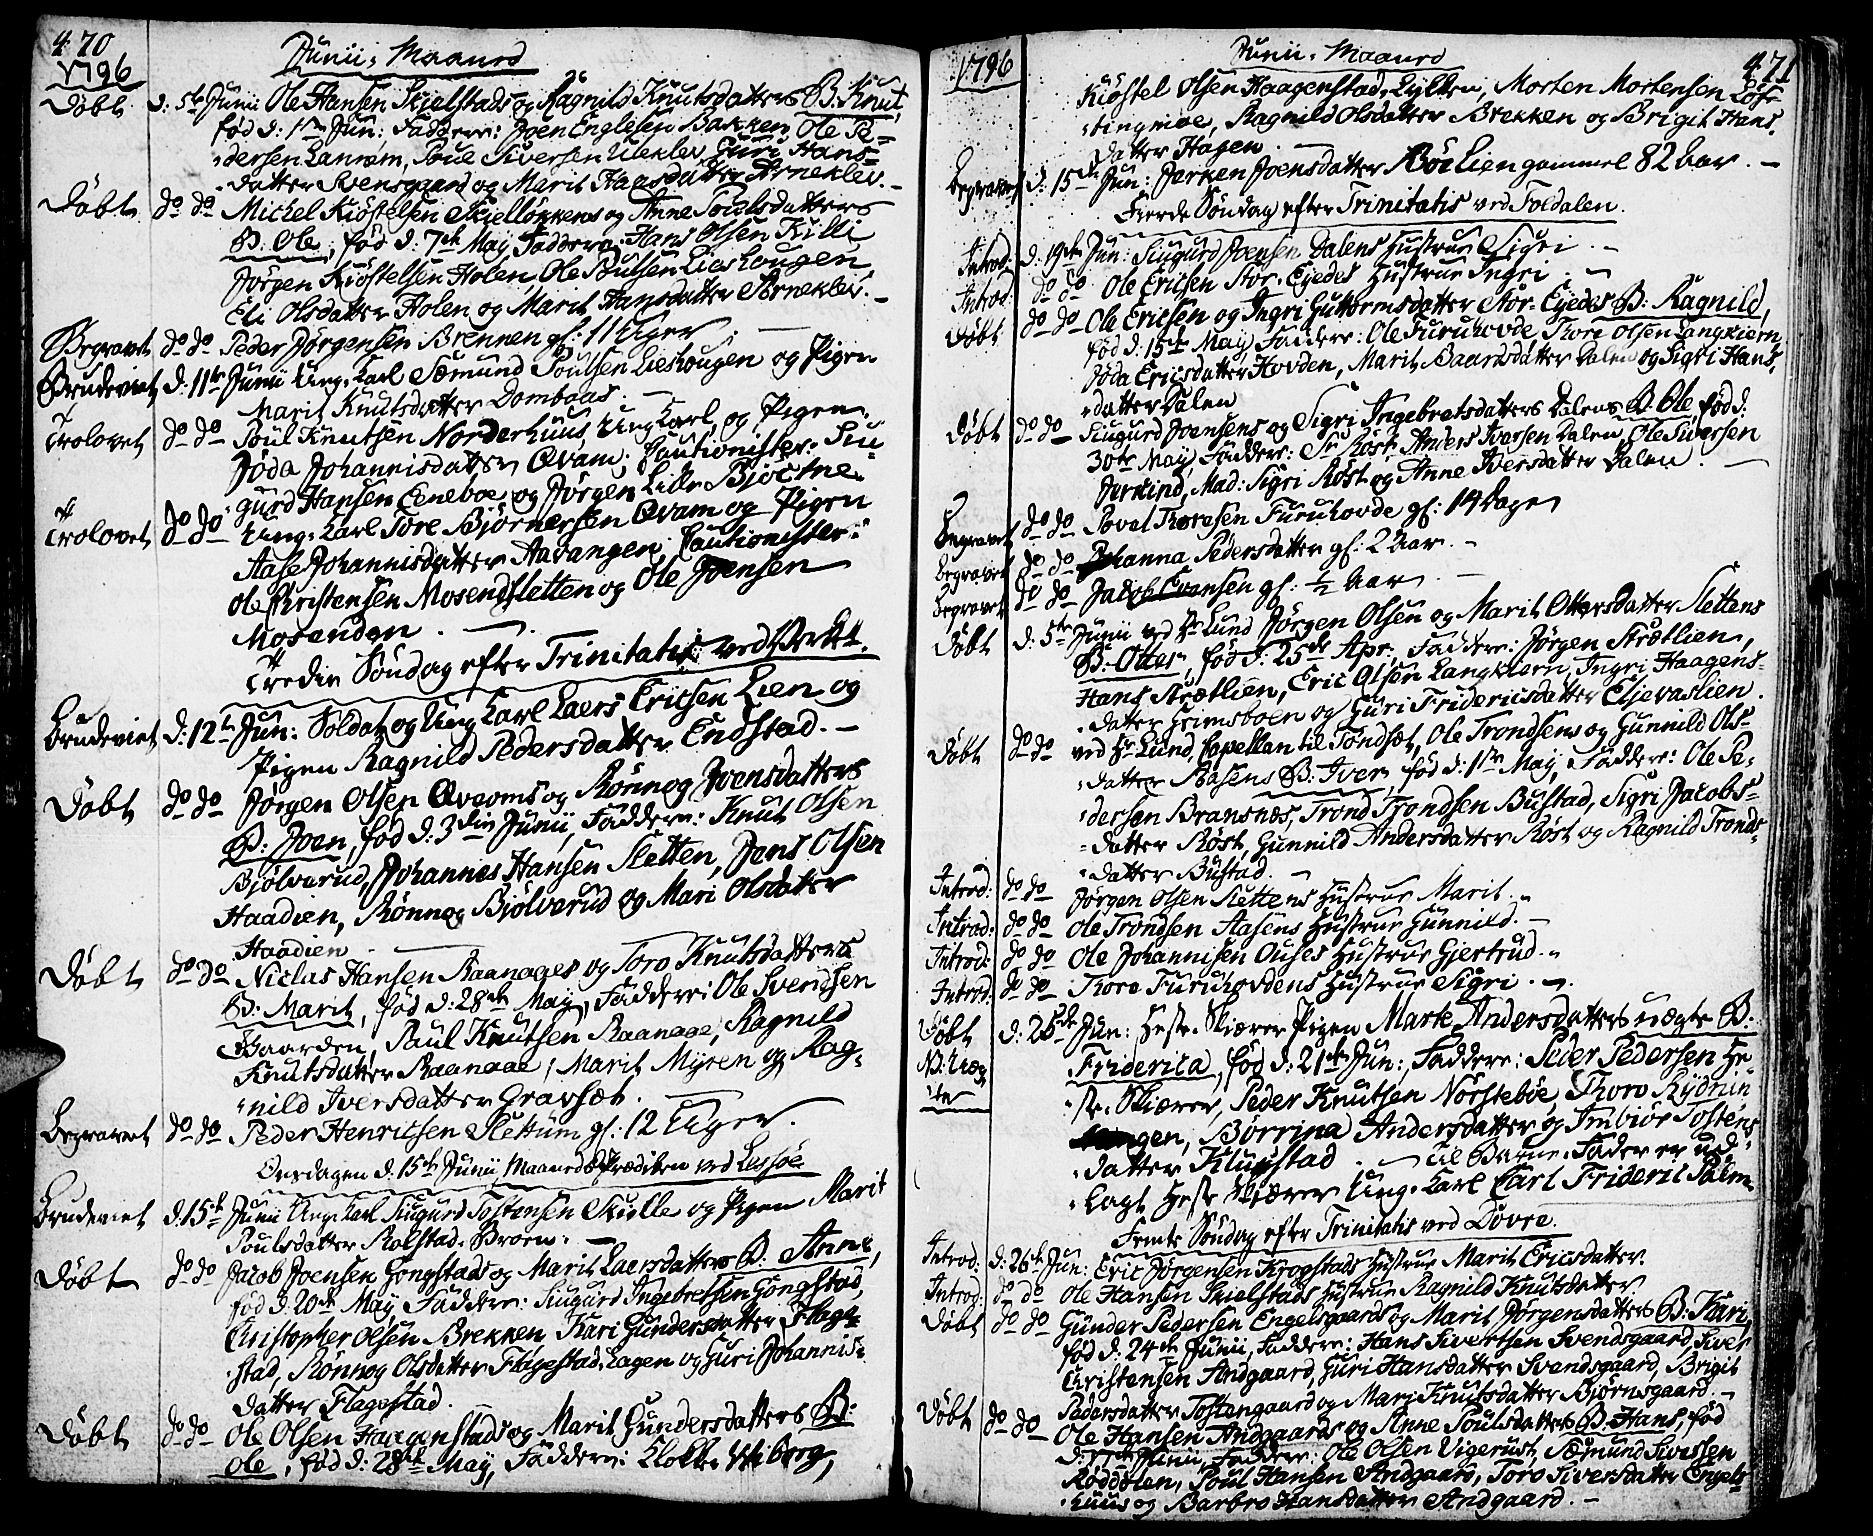 470
1796 Junii Maaned
Döbt d: 5te Junii Ole Hansen Skielstads og Ragnild Knutsdatters B: Knut,
fød d: 1ste Jun: Faddere: Joen Englesen Bakken, Ole Pe-
dersen Lannem, Poul Siversen Uleklev, Guri Hans-
datter Svensgaard og Marit Hansdatter Arneklev. -
Döbt do do Michel Kiöstelsen Skielløkkens og Anne Poulsdatters
B: Ole, fød d: 7de May, Faddere: Hans Olsen Killi
Jörgen Kiöstelsen Holen, Ole Poulsen Lieshougen,
Eli Olsdatter Holen og Marit Hansdatter Arneklev. -
Begravet do do Peder Jörgensen Brennen gl: 11 Uger. -
Brudeviet d: 11te Junii Ung-Karl Sæmund Poulsen Lieshougen og Pigen
Marit Knutsdatter Dombaas. -
Trolovet do do Poul Knutsen Norderhuus, Ung Karl, og Pigen
Jöda Johannisdatter Qvam. Cautionister: Siu-
gurd Hansen Eeneboe og Jörgen Lille Bjöctne
Trolovet do do Ung-Karl Tore Björnersen Qvam og Pigen
Aase Johannisdatter Aavangen. Cautionister:
Ole Christensen Mosendsletten og Ole Joensen
Mosenden. -
Tredie Söndag efter Trinitatis ved Verket.
Brudeviet d: 12te Jun: Soldat og Ung Karl Laers Ericsen Lien og
Pigen Ragnild Pedersdatter Endstad. -
Döbt do do Jörgen Olsen Qvaoms og Rönnog Joensdatters
B: Joen, fød d: 3die Junii, Faddere: Knut Olsen
Bjölverud, Johannes Hansen Sletten, Jens Olsen
Haadien, Rönnog Bjölverud og Mari Olsdatter
Haadien -
Döbt do do Niclas Hansen Raanages og Toro Knutsdatters
B: Marit, fød d: 28de May, Faddere: Ole Svendsen
Gaarden, Paul Knutsen Raanaae, Ragnild
Knutsdatter Raanaae, Marit Myren og Rag-
nild Iversdatter Gravset. -
Begravet do do Peder Henricsen Slettum gl: 12 Uger.
Onsdagen d. 15de Junii, Maaneds-Prædiken ved Lessöe
Brudeviet d: 15de Junii Ung Karl Siugurd Tostensen Skielle og Pigen Marit
Poulsdatter Rolstad-Broen. -
Döbt do do Jacob Joensen Gongstads og Marit Laersdatters B: Anne,
fød d: 20de May, Faddere: Siugurd Ingebretsen Gongstad,
Christopher Olsen Brekken Kari Gundersdatter Flage-
stad, Rönnog Olsdatter Flagestad-Hagen og Guri Johannis-
datter Flagestad.
Döbt do do Ole Olsen Haagenstads og Marit Gundersdatters B:
Ole, fød d: 28de May, Faddere: Klokker Wiborg,
1796 Junii Maaned 471
Kiöstel Olsen Haagenstad-Lykken, Morten Mortensen Löse-
tingmoe, Ragnild Olsdatter Brekken og Brigit Hans-
datter Hagen. -
Begravet d: 15de Jun: Jerken Joensdatter Böe Lien gammel 82 Aar. -
Fierde Söndag efter Trinitatis ved Foldalen.
Introd: d: 19de Jun: Siugurd Joensen Dalens Hustrue Sigri. -
Introd: do do Ole Ericsen Stor-Eyedes Hustrue Ingri -
Döbt do do Ole Ericsen og Ingri Guttormsdatter Stor-Eyedes B: Ragnild,
fød d: 15de May, Faddere: Ole Furuhovde, Thore Olsen Langkiern,
Jöda Ericsdatter Hovden, Marit Baardsdatter Dalen og Sigri Hans-
datter Dalen
Döbt do do Siugurd Joensens og Sigri Ingebretsdatters Dalens B: Ole fød d:
30te May Faddere: Sr Röst, Anders Iversen Dalen, Ole Siversen
Jerkind, Mad: Sigri Röst og Anne Iversdatter Dalen. -
Begravet do do Povel Thoresen Furuhovde gl: 14 Dage
Begravet do do Johanna Pedersdatter gl: 2 Aar. -
Begravet do do Jacob Evensen gl: ½ Aar. -
Döbt d: 5te Junii ved Hr Lund Jörgen Olsen og Marit Ottersdatter Slettens
B: Otter, fød d: 25de Apr: Faddere: Jörgen Strætlien,
Hans Strætlien, Eric Olsen Langkiern, Ingri Haagens-
datter Grimsboen og Guri Fridericsdatter Elsevaslien.
Döbt do do ved Hr Lund, Capellan til Tøndset, Ole Trondsens og Gunnild Ols-
datter Aasens B: Iver, fød d: 1ste May, Faddere: Ole Pe-
dersen Bransnæs, Trond Trondsen Bustad, Sigri Jacobs-
datter Röst, Gunnild Andersdatter Röst og Ragnild Tronds-
datter Bustad. -
Introd: do do Jörgen Olsen Slettens Hustrue Marit. -
Introd: do do Ole Trondsen Aasens Hustrue Gunnild. -
Introd: do do Ole Johannisen Ouses Hustrue Gjertrud. -
Introd: do do Thore Furuhovdens Hustrue Sigri. -
Döbt d: 26de Jun: Heste-Skiærer Pigen Marte Andersdatters uægte B:
N: Uæg-
te Friderica, fød d: 21de Jun: Faddere: Peder Pedersen He-
ste-Skiærer, Peder Knutsen Nörsteböe Thoro Rydnin-
gen, Borrina Andersdatter og Imbiör Tostens-
datter Klugstad. - Til Barne-Fader er ud-
lagt Heste Skiærer Ung-Karl Carl Frideric Palm
Femte Söndag efter Trinitatis ved Dovre.
Introd: d: 26de Jun: Eric Jörgensen Krogstads Hustrue Marit Ericsdatter.
Introd: do do Ole Hansen Skielstads Hustrue Ragnild Knutsdatter
Döbt do do Gunder Pedersen Engelsgaards og Marit Jörgensdatters B: Kari,
fød d. 24de Junii, Faddere: Hans Sivertsen Svendsgaard, Siver
Christensen Andgaard, Guri Hansdatter Svendsgaard, Brigit
Pedersdatter Tostengaard og Mari Knutsdatter Bjørnsgaard. -
Döbt do do Ole Hansen Andgaards og Anne Poulsdatters B: Hans, fød
Junii, Faddere: Ole Olsen Vigerust, Sæmund Sivessen
Röddölen, Poul Hansen Andgaard, Toro Siversdatter Engels-
huus og Barbro Hansdatter Andgaard. -